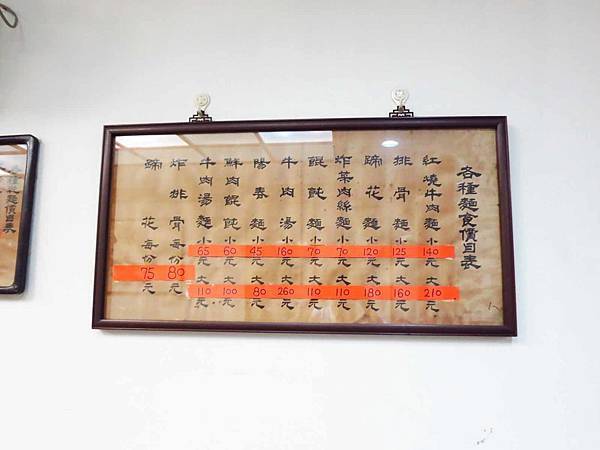 各種麵食價目表
紅燒牛肉麵小140元大210元
排骨麵小125元大160元
蹄花麵小120元大180元
炸菜肉絲麵小70元大110元
餛飩麵小70元大110元
牛肉湯小160元大260元
陽春麵小45元大80元
鮮肉餛飩小60元大100元
牛肉湯麵小65元大110元
炸排骨每份80元
蹄花每份75元